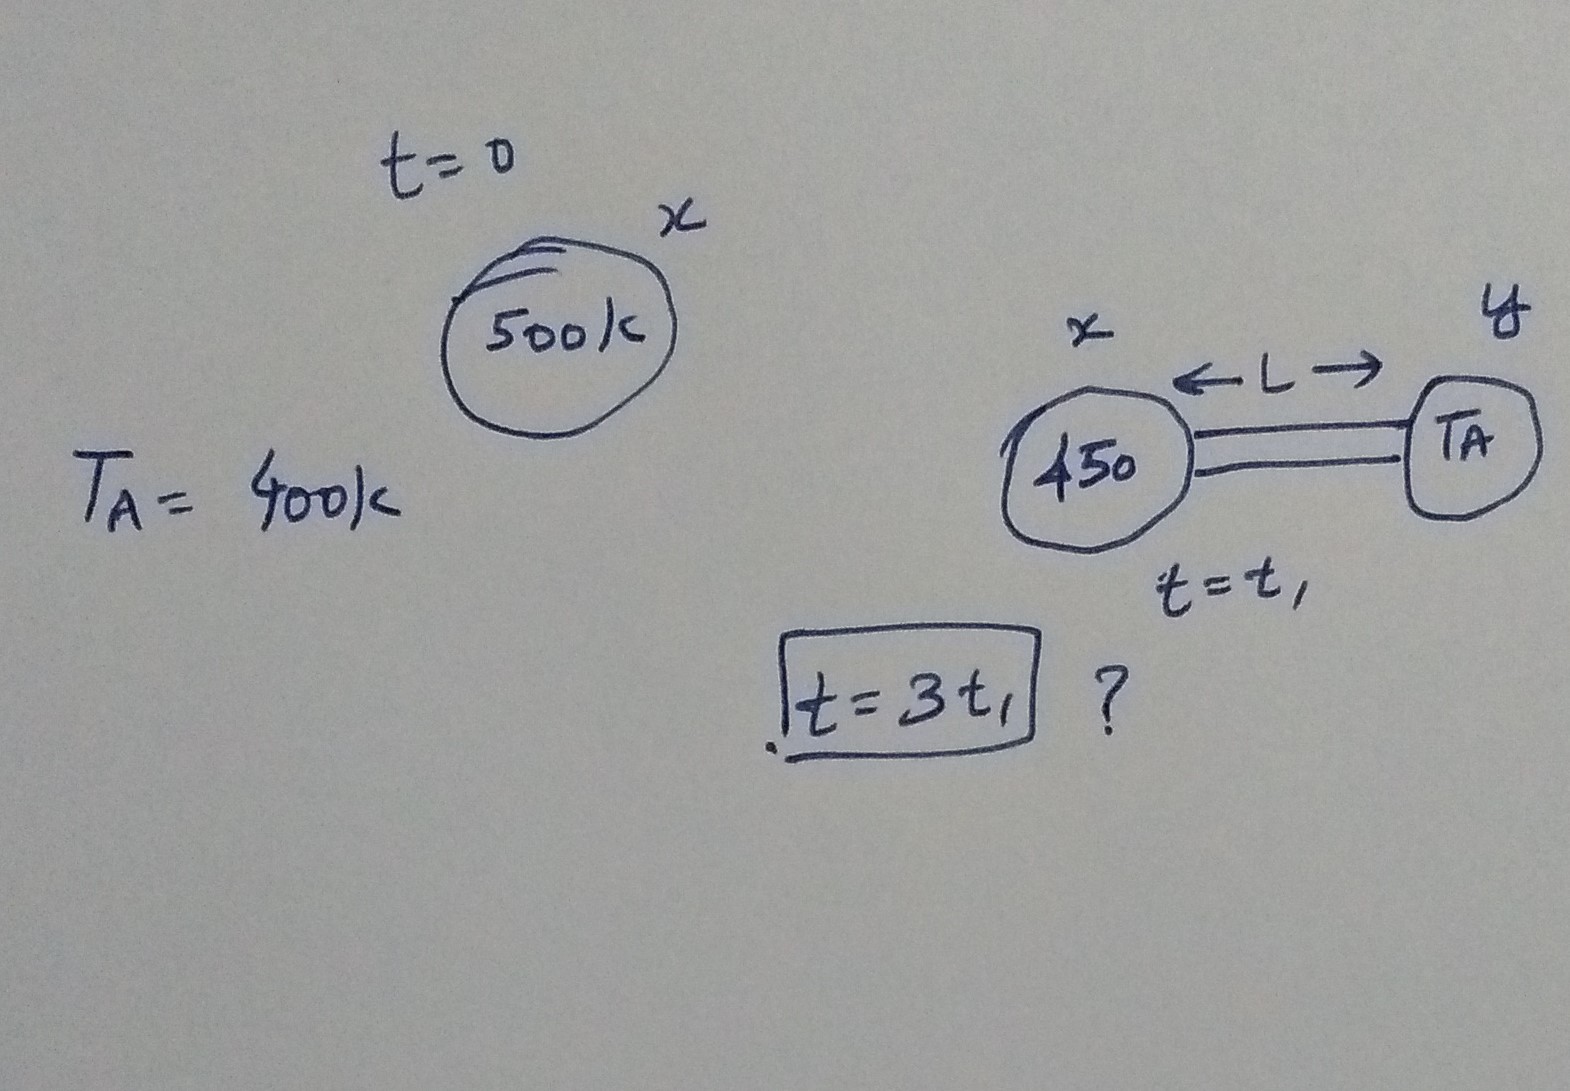 t = 0
x
500k
TA = 400k
x
y
← L →
450
TA
t = t1
t = 3t1 ?